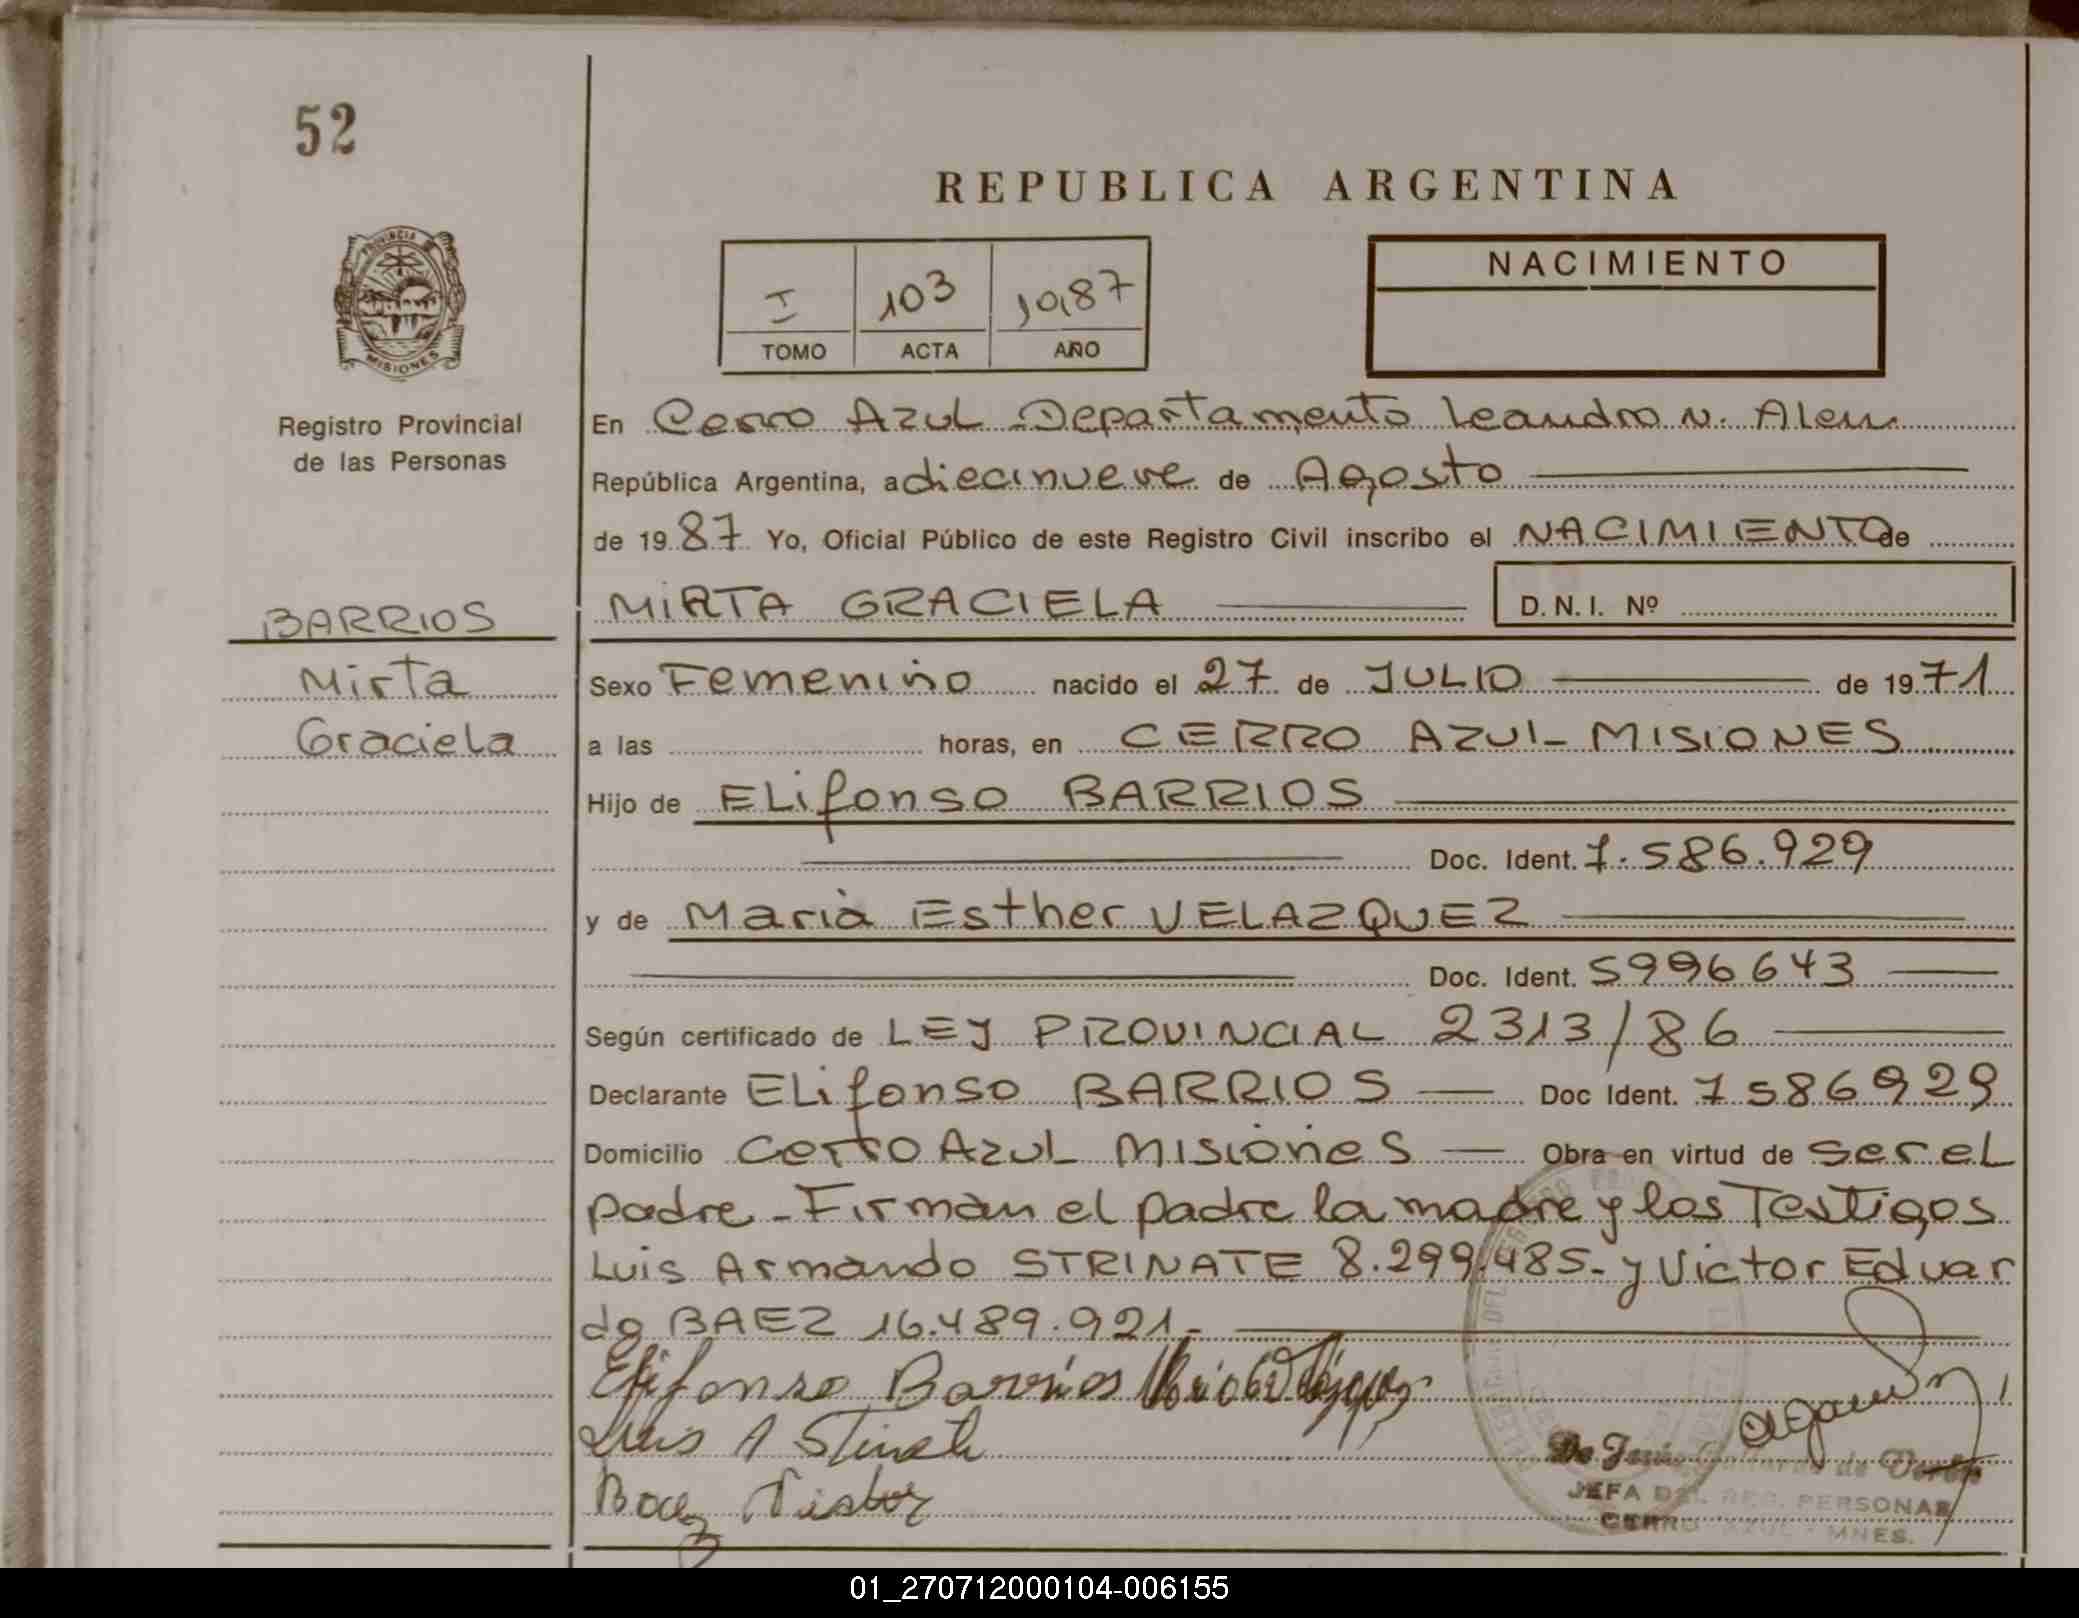 52
REPUBLICA ARGENTINA
PROVINCIA
MISIONES
Registro Provincial
de las Personas
I 103 1987
TOMO ACTA AÑO
NACIMIENTO
En Cerro Azul Departamento Leandro N. Alem
República Argentina, a diecinueve de Agosto
de 1987 Yo, Oficial Público de este Registro Civil inscribo el NACIMIENTO de
BARRIOS
Mirta
Graciela
MIRTA GRACIELA D.N.I. Nº
Sexo Femenino nacido el 27 de JULIO de 1971
a las horas, en CERRO AZUL - MISIONES
Hijo de ELifonso BARRIOS
Doc. Ident. 7.586.929
y de Maria Esther VELAZQUEZ
Doc. Ident. 5996643
Según certificado de LEY PROVINCIAL 2313/86
Declarante ELifonso BARRIOS — Doc Ident. 7586929
Domicilio Cerro Azul Misiones — Obra en virtud de ser el
padre - Firman el padre la madre y los Testigos
Luis Armando STRINATE 8.299.485 - y Victor Eduar
do BAEZ 16.489.921 -
Elifonso Barrios
Luis A Strinate
Baez Victor
De Jesús de
JEFA DEL REG. PERSONAS
CERRO AZUL - MNES.
01_270712000104-006155